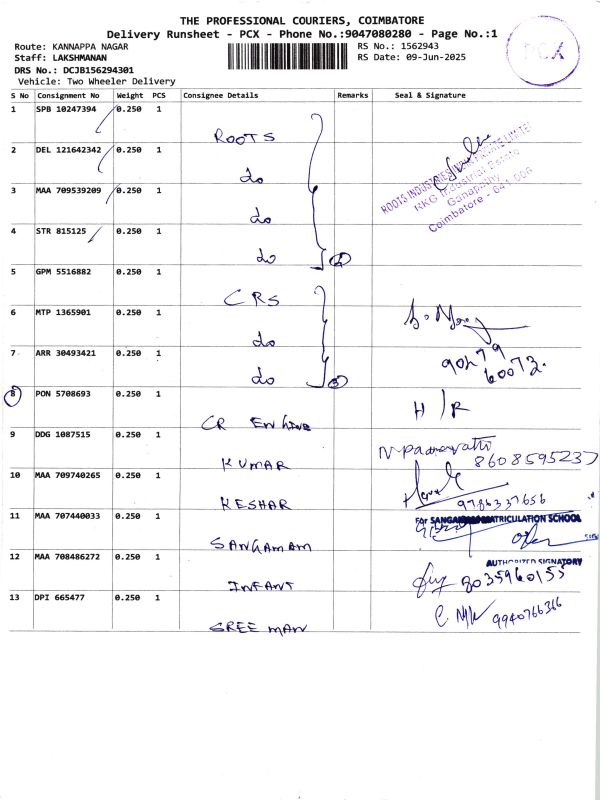 THE PROFESSIONAL COURIERS, COIMBATORE
Delivery Runsheet - PCX - Phone No.:9047080280 - Page No.:1
Route: KANNAPPA NAGAR
Staff: LAKSHMANAN
DRS No.: DCJB156294301
Vehicle: Two Wheeler Delivery
RS No.: 1562943
RS Date: 09-Jun-2025
PCX
S No Consignment No Weight PCS Consignee Details Remarks Seal & Signature
1 SPB 10247394 0.250 1 ROOTS
2 DEL 121642342 0.250 1 do
3 MAA 709539209 0.250 1 do
4 STR 815125 0.250 1 do 4
ROOTS INDUSTRIES INDIA PRIVATE LIMITED
RKG Industrial Estate
Ganapathy
Coimbatore - 641 006
5 GPM 5516882 0.250 1 CRS
6 MTP 1365901 0.250 1 do
7 ARR 30493421 0.250 1 do 3
90479
60073.
8 PON 5708693 0.250 1 CR Engine H/R
9 DDG 1087515 0.250 1 KUMAR N Padmavathi
8608595237
10 MAA 709740265 0.250 1 KESHAR
9786337656
11 MAA 707440033 0.250 1 SANGAMAM
For SANGAMAM MATRICULATION SCHOOL
AUTHORIZED SIGNATORY
12 MAA 708486272 0.250 1 INFANT 8035960155
13 DPI 665477 0.250 1 SREE MAN 9940766366